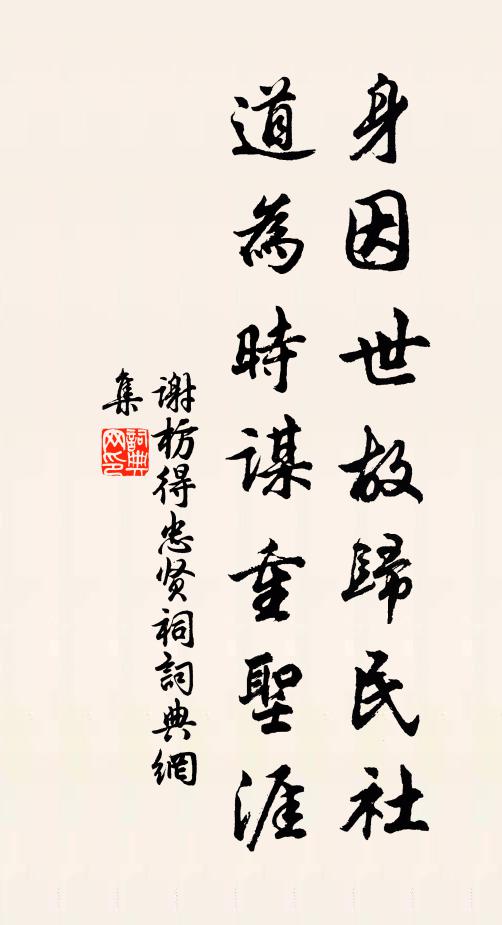 身因世故歸民社
道為時謀重聖涯
谢枋得忠贤祠詞典網
集
詞典
网印